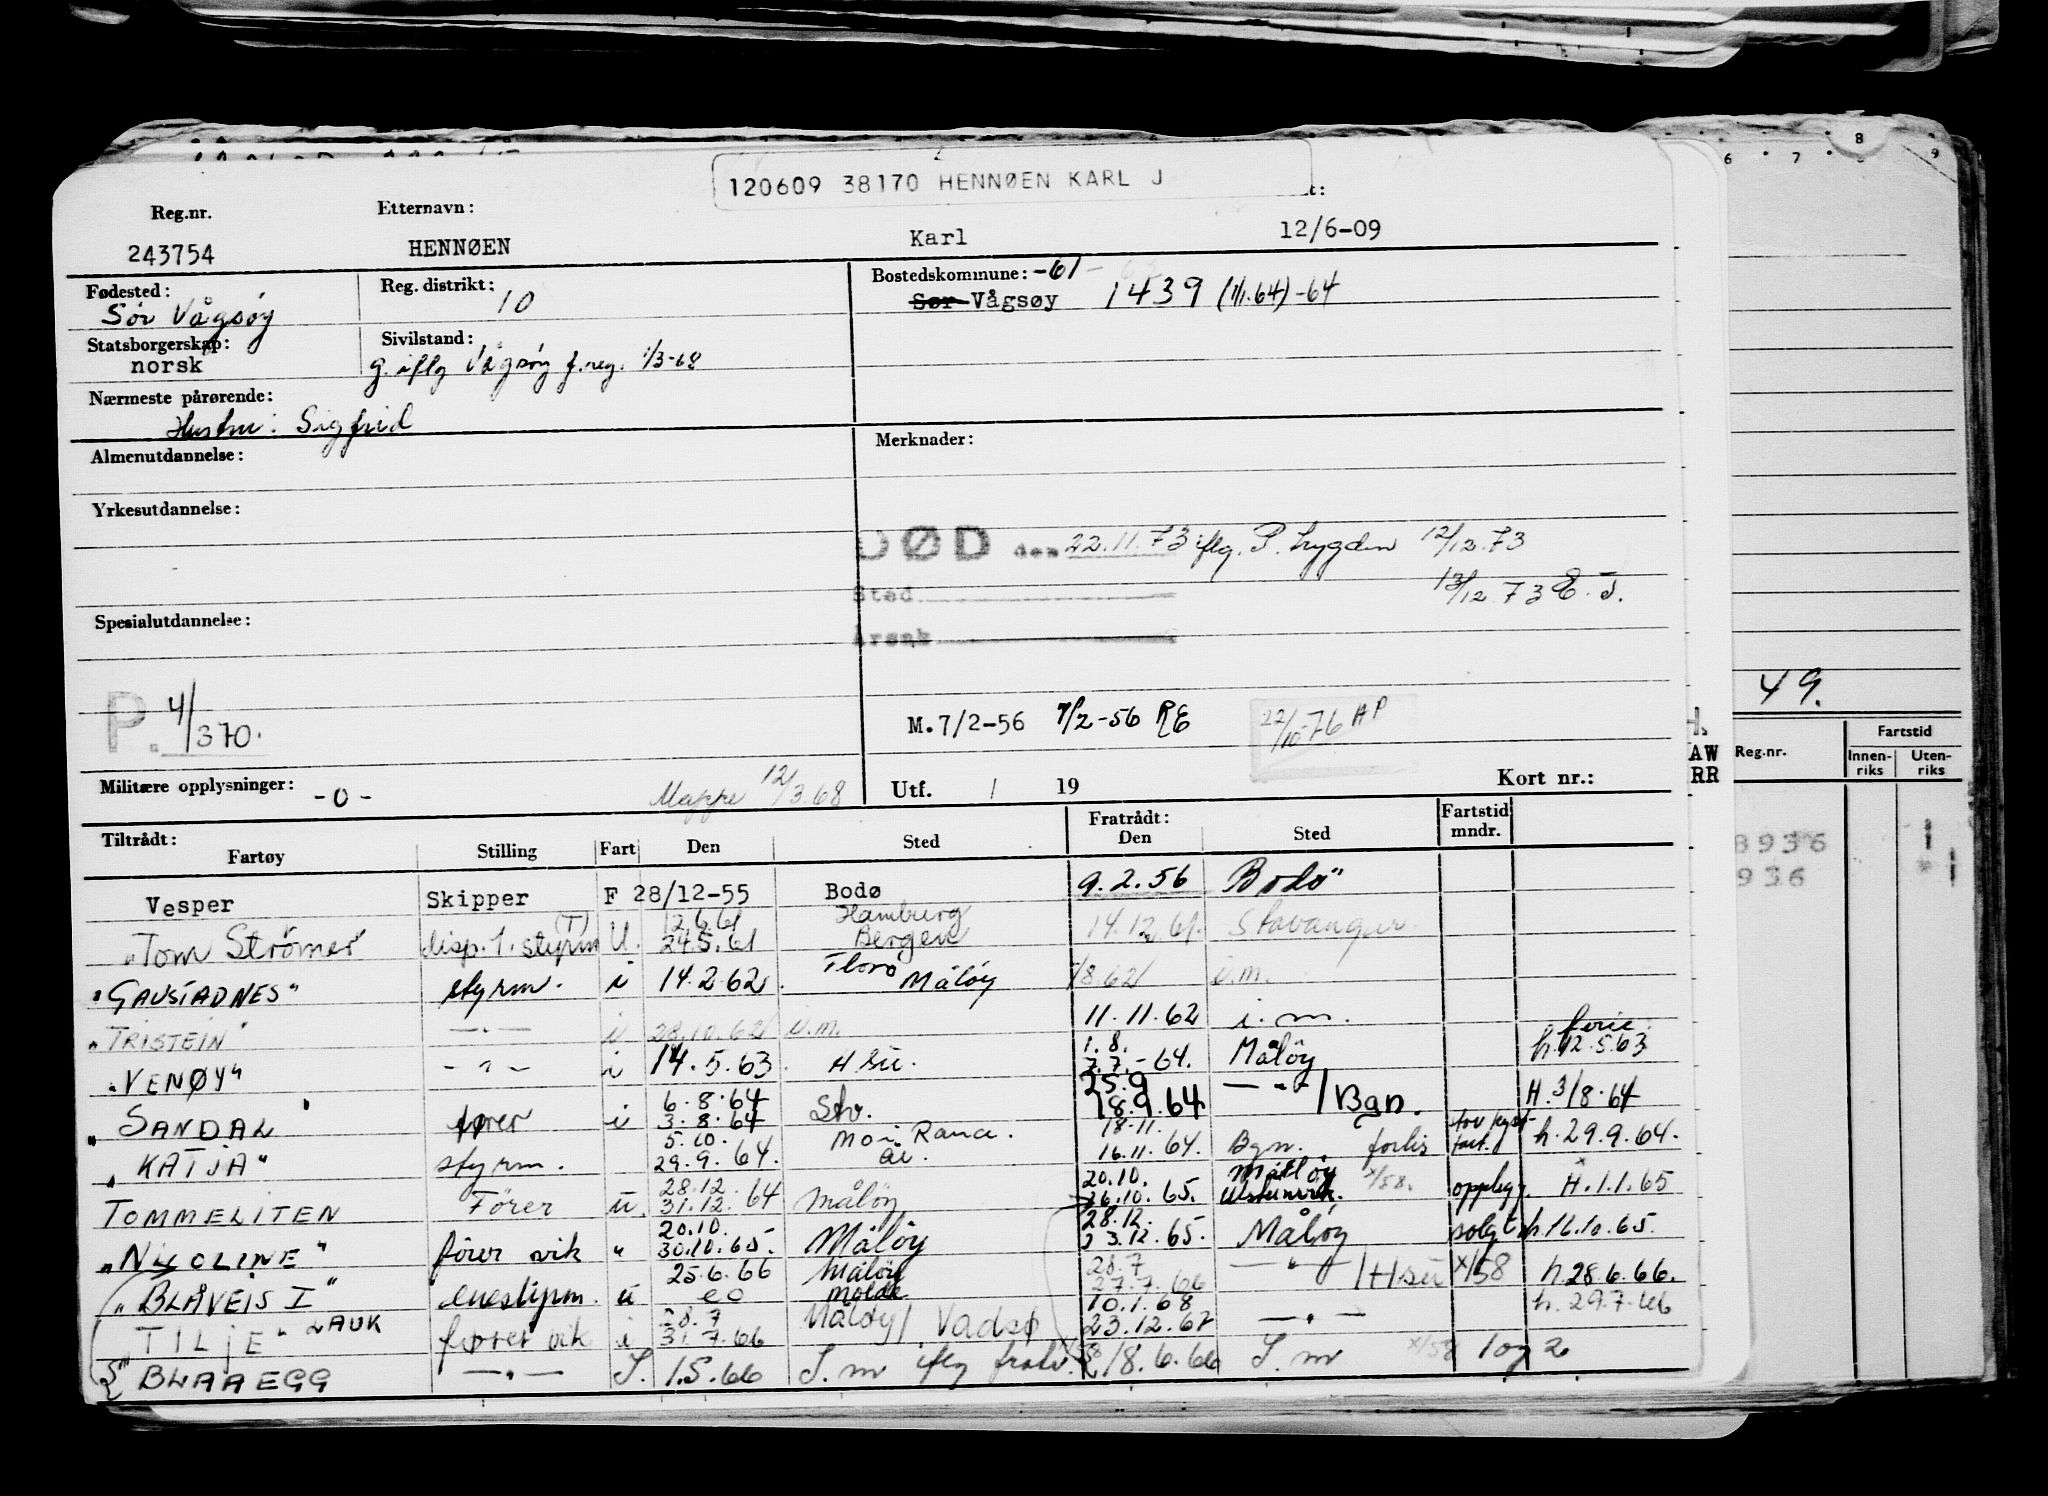 8
6 7 8 9
120609 38170 HENNØEN KARL J
Reg.nr. Etternavn: t:
243754 HENNØEN Karl 12/6-09
Fødested: Reg. distrikt: Bostedskommune: -61-
Sör Vågsöy 10 Sør Vågsøy 1439 (1/1.64)-64
Statsborgerskap: Sivilstand:
norsk g. iflg Vågsöy f.reg. 1/3-68
Nærmeste pårørende:
Hustru: Sigfrid
Almenutdannelse: Merknader:
Yrkesutdannelse:
DØD den 22.11.73 iflg. P. trygden 12/12.73
Sted 13/12.73 E.J.
Spesialutdannelse: Årsak
49.
P. 4/370. M.7/2-56 7/2-56 RE 22/10-76 AP
Militære opplysninger: -0- Mappe 12/3.68 Utf. / 19 Kort nr.:
AW
RR
Reg.nr. Fartstid
Innenriks Utenriks
8936
936
Tiltrådt: Fratrådt: Fartstid mndr.
Fartøy Stilling Fart Den Sted Den Sted
Vesper Skipper F 28/12-55 Bodø 9.2.56 Bodö
"Tom Strömer" disp. 1. styrm (T) U. 12.6.61 24.5.61 Hamburg Bergen 14.12.61. Stavanger.
"GAUSTADNES" styrm. i 14.2.62. Florø Måløy 1/8.62 i.m.
"TRISTEIN" —"— i 28.10.62 i.m. 11.11.62 i.m.
"VENØY" —"— i 14.5.63. H sii. 1.8. 7.7.-64. Måløy ferie h.12.5.63
"SANDAL" fører i 6.8.64 3.8.64 Stv. 25.9 18.9.64 —"—/Bgn. H.3/8.64
"KATJA" styrm. 5.10. 29.9.64. Mo i Rana. 18.11. 16.11.64. Bgn. forlis h.29.9.64.
TOMMELITEN Förer u. 28.12. 31.12.64 Måløy 20.10. 26.10.65. Måløy Ulsteinvik. x/58. opplegg. H.1.1.65
"NICOLINE" förer vik " 20.10. 30.10.65. Måløy 28.12. 23.12.65. Måløy solgt h.16.10.65.
"BLÅVEIS I" enestyrm. u 25.6.66 Måløy Molde 28.7 27.7.66 —"— x/58 h.28.6.66.
"TILJE" fører vik i 28.7 31.7.66 Måløy/Vadsø 10.1.68 23.12.67 —"— h.29.7.66
"BLAAEGG —"— S. 1.5.66 S.m iflg 18.6.66 S.m x/58 1 og 2